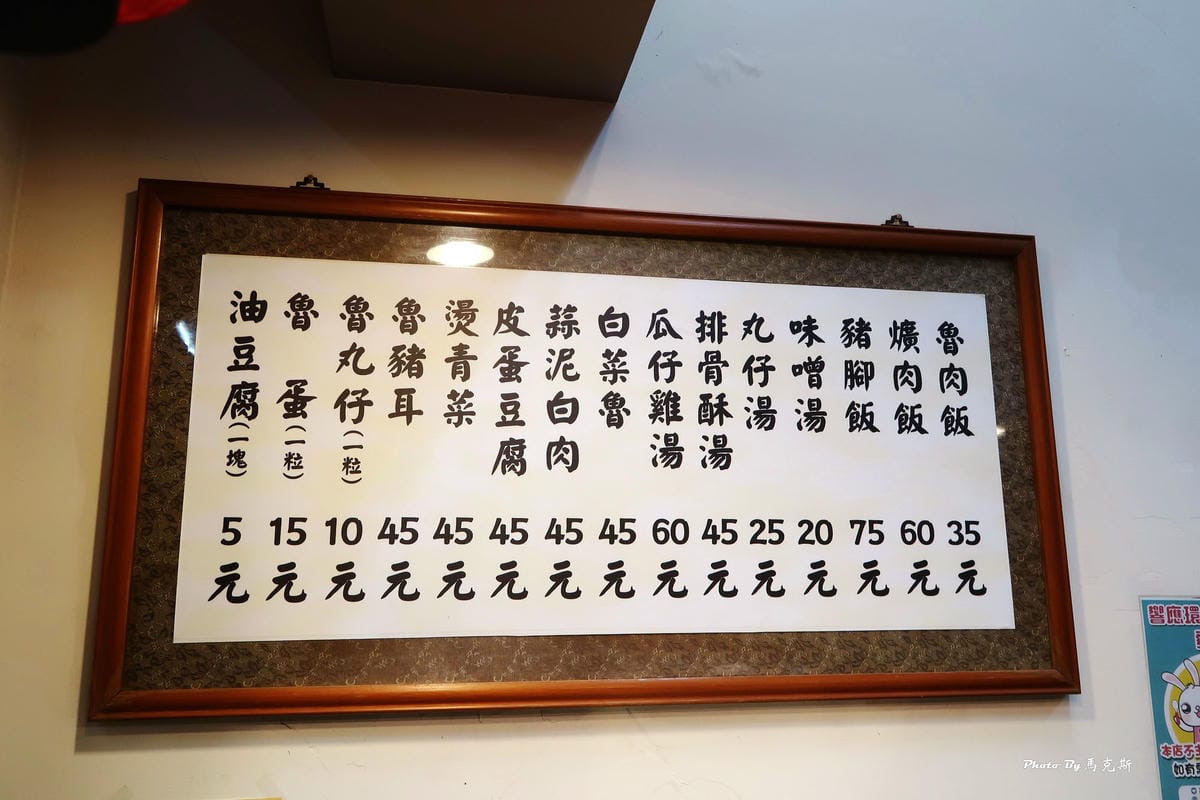 魯肉飯 35元
爌肉飯 60元
豬腳飯 75元
味噌湯 20元
丸仔湯 25元
排骨酥湯 45元
瓜仔雞湯 60元
白菜魯 45元
蒜泥白肉 45元
皮蛋豆腐 45元
燙青菜 45元
魯豬耳 45元
魯丸仔(一粒) 10元
魯蛋(一粒) 15元
油豆腐(一塊) 5元
響應環
本店不主
如有
Photo By 馬克斯